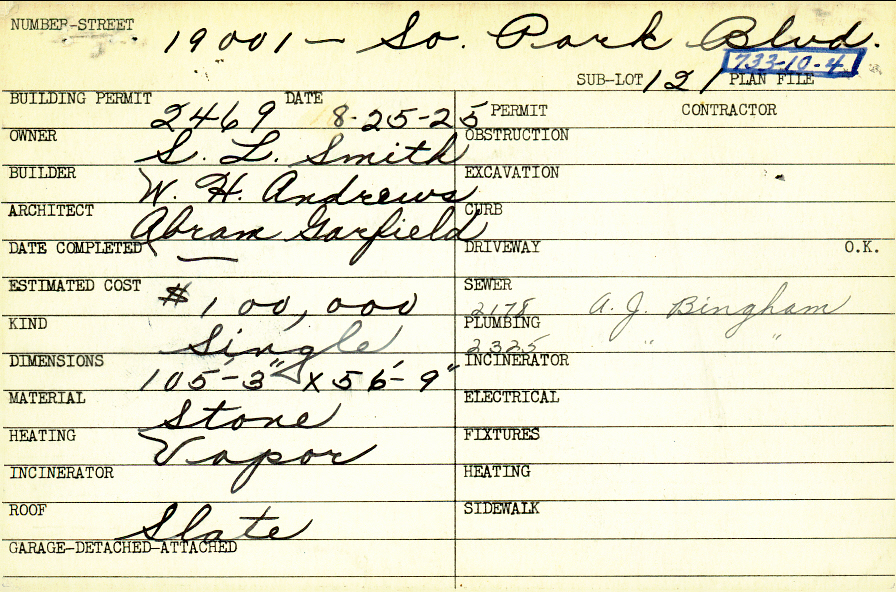 NUMBER-STREET 19001 - So. Park Blvd.
733-10-4
SUB-LOT 121 PLAN FILE
BUILDING PERMIT 2469 DATE 8-25-25
OWNER S. L. Smith
BUILDER W. H. Andrews
ARCHITECT Abram Garfield
DATE COMPLETED —
ESTIMATED COST $100,000
KIND Single
DIMENSIONS 105'-3" x 56'-9"
MATERIAL Stone
HEATING Vapor
INCINERATOR
ROOF Slate
GARAGE-DETACHED-ATTACHED
PERMIT CONTRACTOR
OBSTRUCTION
EXCAVATION
CURB
DRIVEWAY O.K.
SEWER 2178 A. J. Bingham
PLUMBING 2325 " "
INCINERATOR
ELECTRICAL
FIXTURES
HEATING
SIDEWALK